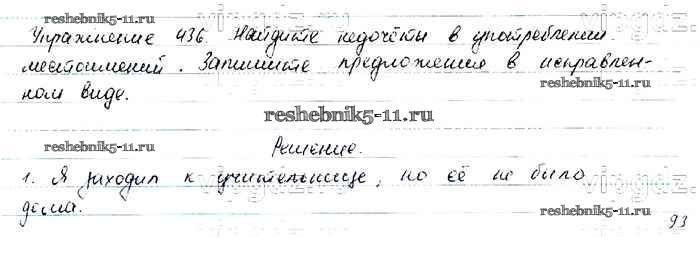 reshebnik5-11.ru
Упражнение 436. Найдите недочёты в употреблении
местоимений. Запишите предложения в исправлен-
reshebnik5-11.ru
ном виде.
reshebnik5-11.ru
reshebnik5-11.ru
Решение.
1. Я заходил к учительнице, но её не было
дома.
reshebnik5-11.ru
93